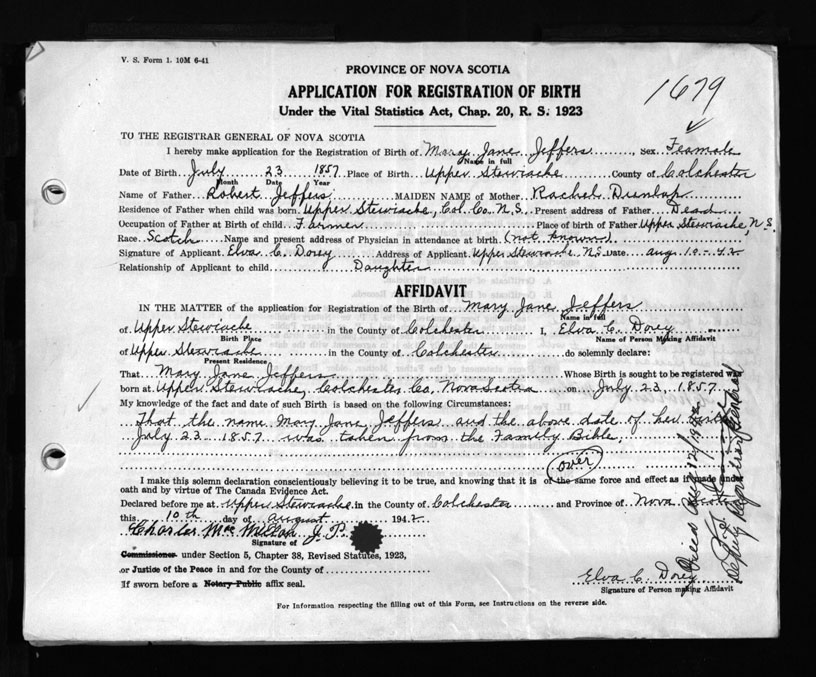 V. S. Form 1. 10M 6-41
PROVINCE OF NOVA SCOTIA
APPLICATION FOR REGISTRATION OF BIRTH
1679
Under the Vital Statistics Act, Chap. 20, R. S. 1923
TO THE REGISTRAR GENERAL OF NOVA SCOTIA
I hereby make application for the Registration of Birth of Mary Jane Jeffers Sex Feamale
Name in full
Date of Birth July 23 1857 Place of Birth Upper Stewiacke County of Colchester
Month Date Year
Name of Father Robert Jeffers MAIDEN NAME of Mother Rachel Dunlap
Residence of Father when child was born Upper Stewiacke, Col. Co. N.S. Present address of Father Dead
Occupation of Father at Birth of child Farmer Place of birth of Father Upper Stewiacke, N.S.
Race Scotch Name and present address of Physician in attendance at birth (not known)
Signature of Applicant Elva C. Dorey Address of Applicant Upper Stewiacke N.S. Date aug. 10-42
Relationship of Applicant to child Daughter
AFFIDAVIT
IN THE MATTER of the application for Registration of the Birth of Mary Jane Jeffers
Name in full
of Upper Stewiacke in the County of Colchester I, Elva C. Dorey
Birth Place Name of Person Making Affidavit
of Upper Stewiacke in the County of Colchester do solemnly declare:
Present Residence
That Mary Jane Jeffers Whose Birth is sought to be registered was
born at Upper Stewiacke, Colchester Co, Nova Scotia on July 23, 1857
My knowledge of the fact and date of such Birth is based on the following Circumstances:
That the name Mary Jane Jeffers and the above date of her birth
July 23 1857 was taken from the Family Bible,
(over)
I make this solemn declaration conscientiously believing it to be true, and knowing that it is of the same force and effect as if made under
oath and by virtue of The Canada Evidence Act.
Declared before me at Upper Stewiacke in the County of Colchester and Province of Nova Scotia
this 10th day of August 1942
Charles Mac Millan J.P.
Signature of
Commissioner under Section 5, Chapter 38, Revised Statutes, 1923,
or Justice of the Peace in and for the County of
If sworn before a Notary Public affix seal.
Elva C. Dorey
Signature of Person making Affidavit
For Information respecting the filling out of this Form, see Instructions on the reverse side.
Deputy Registrar General